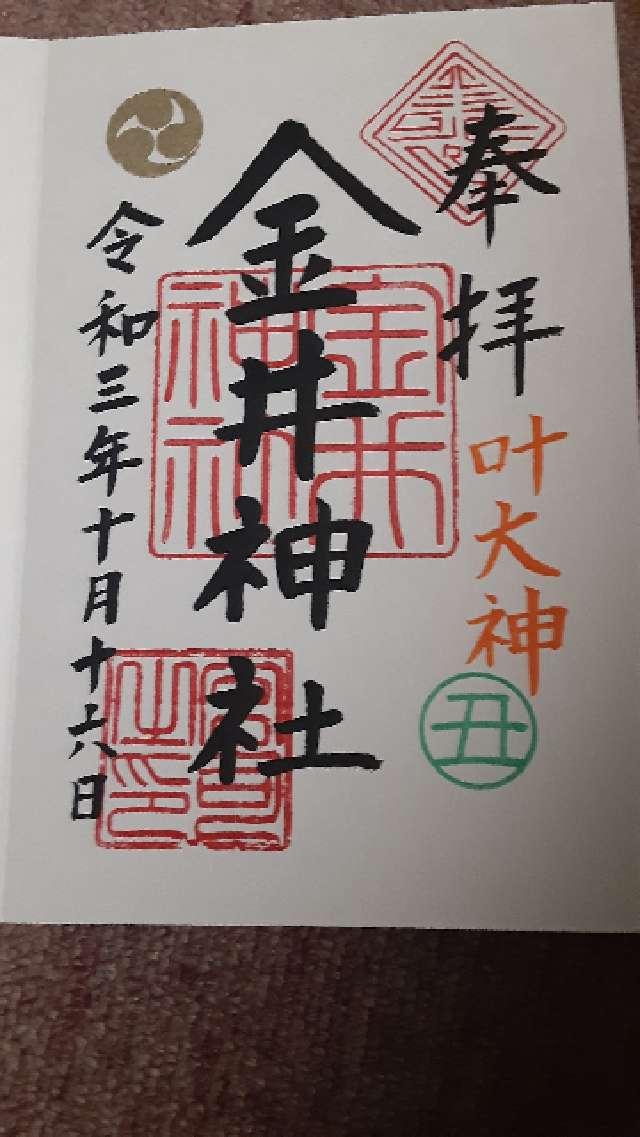 奉拝
叶大神
丑
金井神社
金井神社
宮司之印
令和三年十月十六日